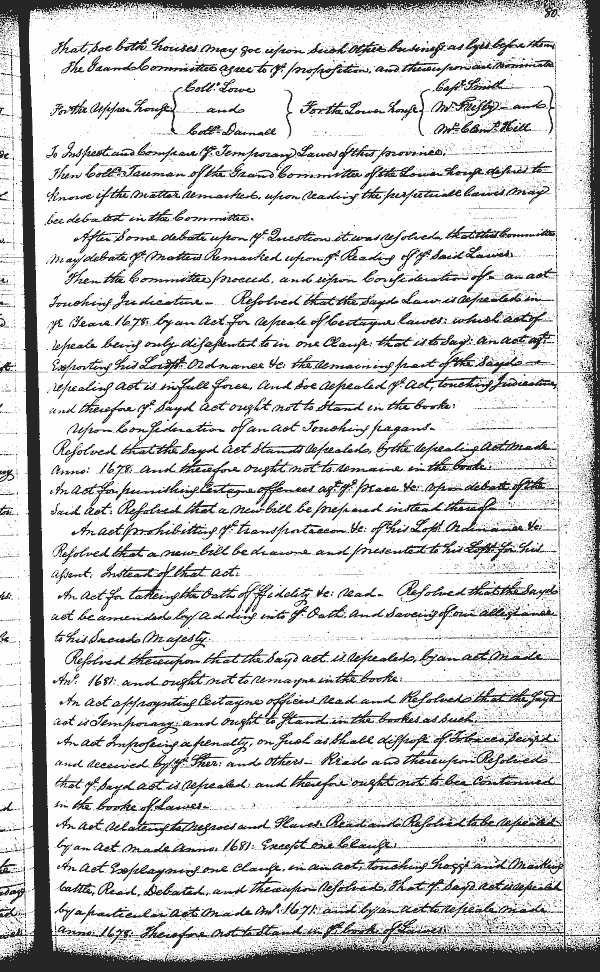 80
That, soe both houses may goe upon such other business as lyes before them
The Grand Committee agree to yᵉ proposition, and thereupon are nominate
For the Upper house { Collᵒ Lowe and Collᵒ Darnall } For the Lower house { Capᵗ Smith Mʳ and Mʳ Clemᵗ Hill }
To Inspect and Compare yᵉ Temporary Lawes of this province.
Then Collᵒ Tauman of the Grand Committee of the Lower house desires to
knowe if the matter remarked, upon reading the perpetuall Lawes may
bee debated in the Committee.
After Some debate upon yᵉ Question it was resolved, that this Committee
may debate yᵉ Matters Remarked upon yᵉ Reading of yᵉ said Lawes.
Then the Committee proceed, and upon Consideration of an act
Touching Judicature Resolved that the Sayd Law is repealed in
yᵉ Yeare 1678: by an Act for repeale of Certayne lawes: which act of
repeale being only disassented to in one Clause: that is to Say: an act agᵗ
Exporting his Loᵖˢ Ordnance &c: the remaining part of the Sayd
repealing act is in full force, And soe repealed yᵉ Act, touching Judicature,
and therefore yᵉ Sayd Act ought not to Stand in the booke:
Upon Consideration of an Act Touching pagans.
Resolved that the Sayd Act Stands repealed, by the repealing Act made
Anno: 1678. and therefore ought not to remaine in the booke:
An Act for punishing Certayne offences agᵗ yᵉ peace &c: upon debate of the
Said Act: Resolved that a new bill be prepared instead thereof
An Act prohibitting yᵉ transportaceon &c: of his Loᵖˢ Ordinance &c:
Resolved that a new bill be drawne and presented to his Loᵖ for his
assent: Instead of that act.
An Act for takeing the Oath of ffidelity &c: read. Resolved that the Sayd
act be amended by adding into yᵉ Oath, and Saveing of our allegiance
to his Sacred Majesty.
Resolved thereupon that the Sayd act is repealed, by an act made
Anᵒ. 1681: and ought not to remayne in the booke:
An Act appoynting Certayne officers read and Resolved that the Sayd
act is Temporary; and ought to Stand in the bookes as Such.
An Act Imposeing a penalty, on Such as Shall dispose of Tobaccos Seized
and received by yᵉ Sher: and others. Read and thereupon Resolved
that yᵉ Sayd act is repealed and therefore ought not to bee Continued
in the booke of Lawes.
An Act relateing to Negroes and Slaves Read and Resolved to be repealed
by an act made Anno: 1681: Except one Clause:
An Act Explayning one Clause, in an act, touching hoggs and Marking
Cattle, Read, Debated, and thereupon resolved, That yᵉ Sayd act is repealed
by a particular Act made Anᵒ. 1671: and by an act to repeale made
Anno: 1678. Therefore not to Stand in yᵉ booke of Lawes.